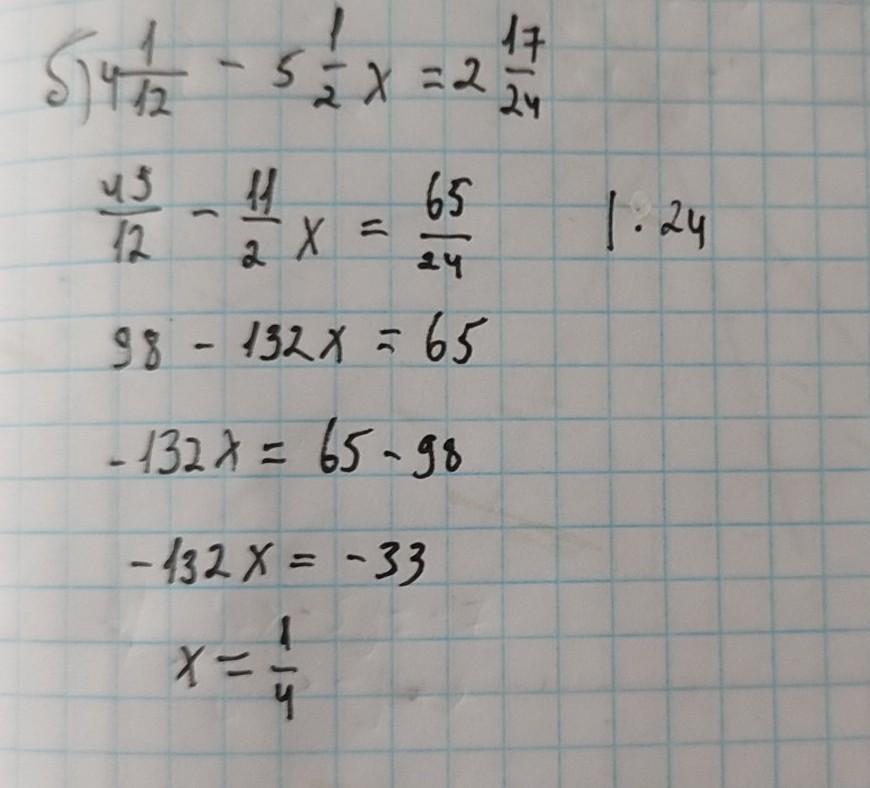 б) 4 1/12 - 5 1/2 x = 2 17/24
49/12 - 11/2 x = 65/24 | · 24
98 - 132x = 65
-132x = 65 - 98
-132x = -33
x = 1/4